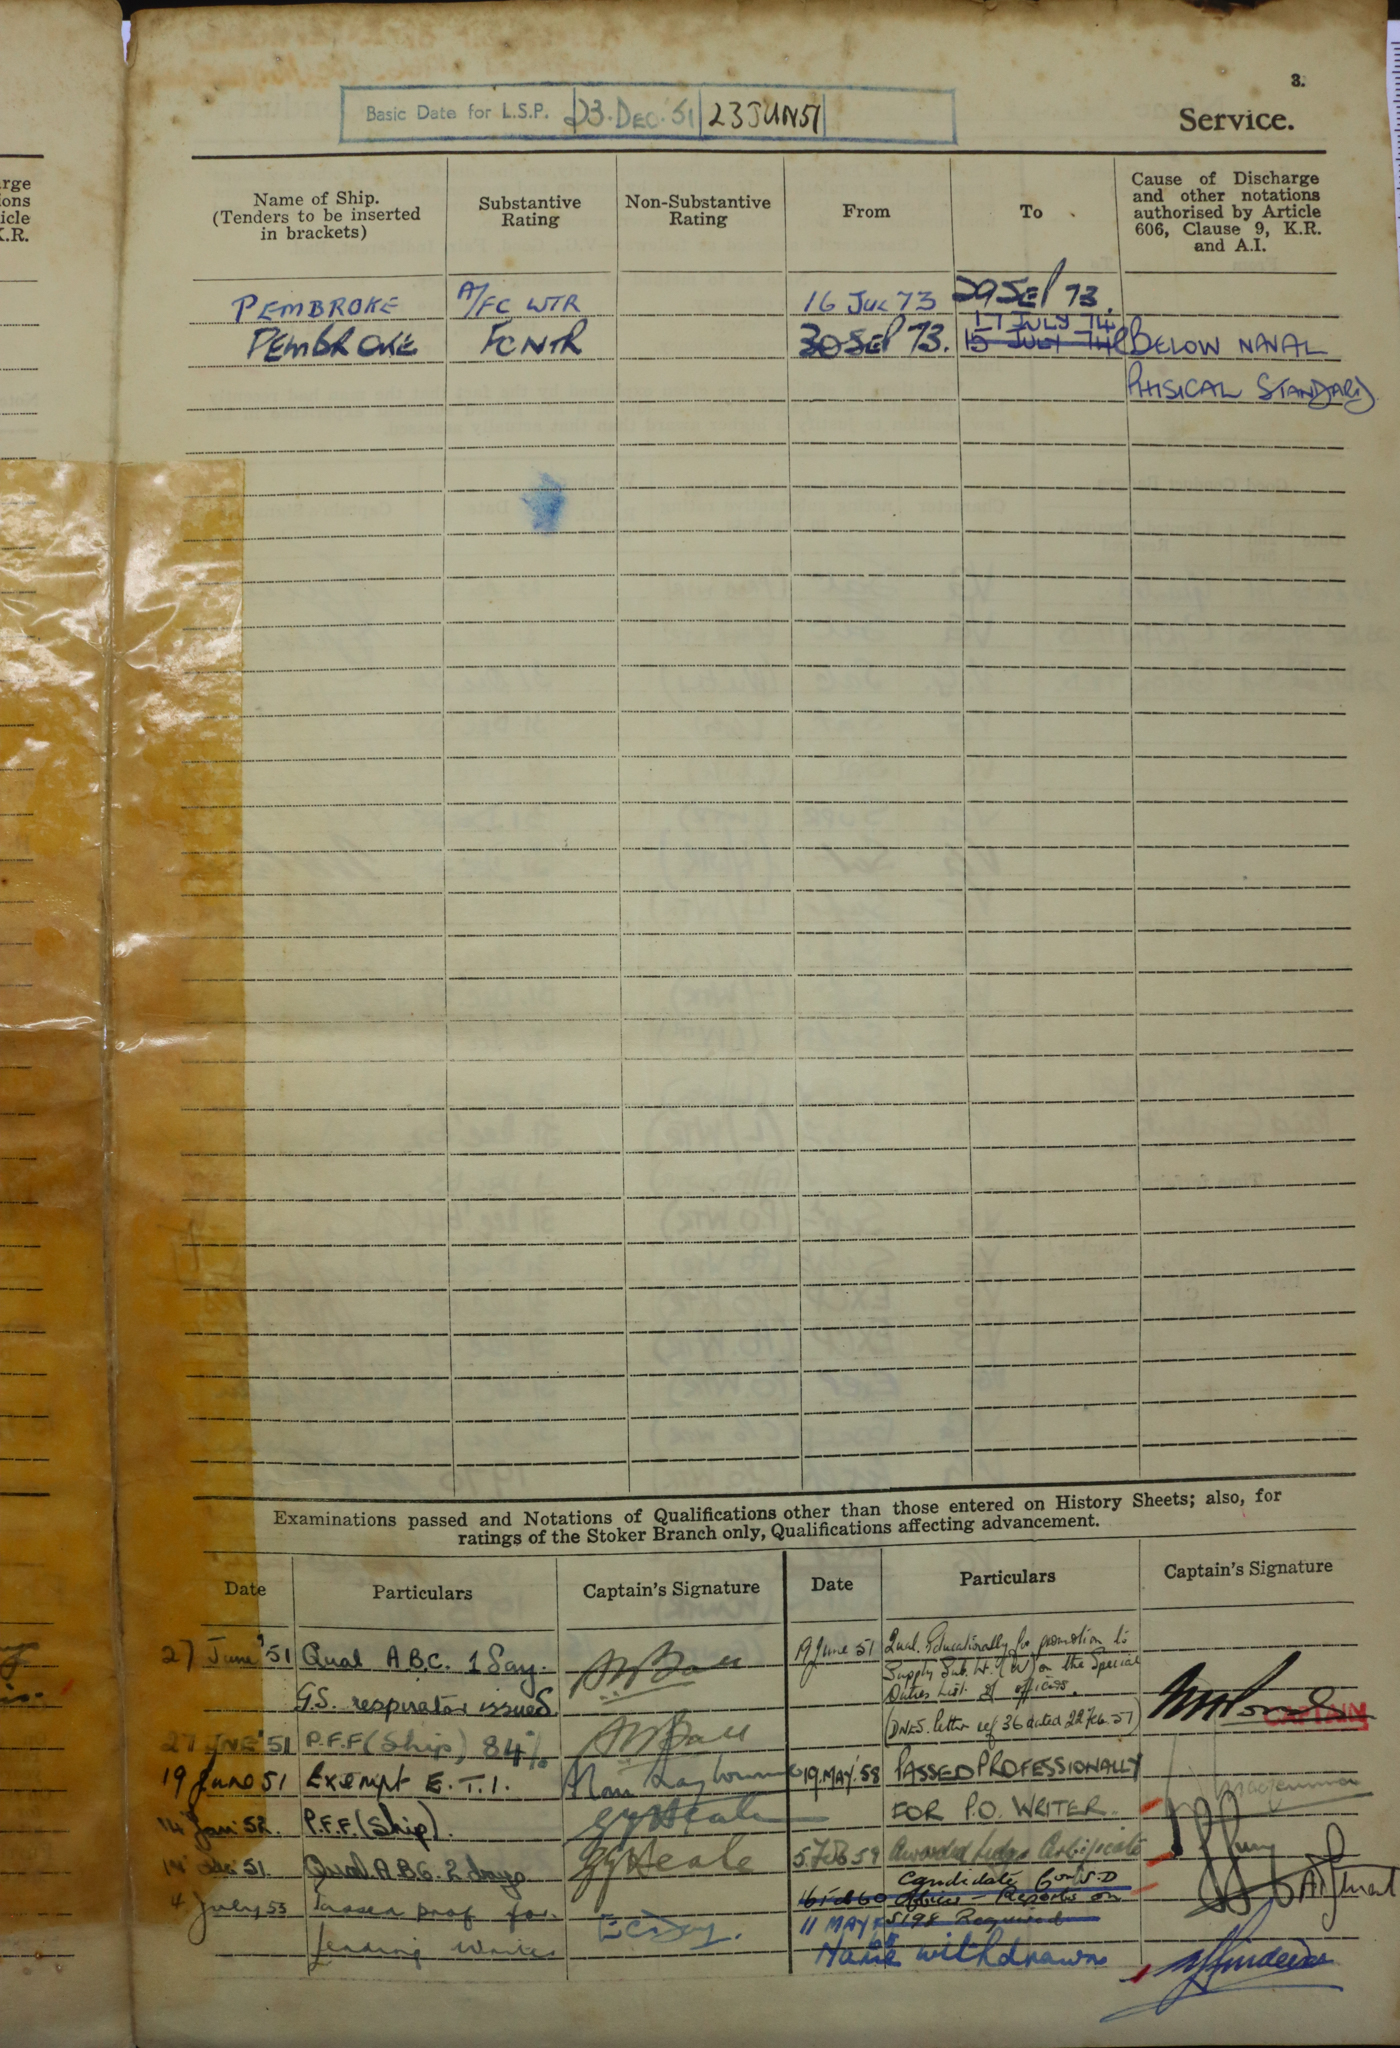 3.
Basic Date for L.S.P. 23·DEC·51 23 JUN 51
Service.
Name of Ship.
(Tenders to be inserted
in brackets)
Substantive
Rating
Non-Substantive
Rating
From
To
Cause of Discharge
and other notations
authorised by Article
606, Clause 9, K.R.
and A.I.
PEMBROKE A/FC WTR 16 JUL 73 29 SEP 73.
17 JULY 74
PEMBROKE FCWTR 30 SEP 73. 15 JULY 74 BELOW NAVAL
PHISICAL STANDARD
Examinations passed and Notations of Qualifications other than those entered on History Sheets; also, for
ratings of the Stoker Branch only, Qualifications affecting advancement.
Date Particulars Captain's Signature Date Particulars Captain's Signature
27 June '51 Qual A.B.C. 1 Day.
G.S. respirator issued
27 JNE '51 P.F.F (Ship) 84%
19 June 51 Exempt E.T.1.
14 Jan 52. P.F.F. (Ship).
14 Dec 51. Qual. A.B.C. 2 days
4 July 53 Passed prof for
Leading Writer
19 June 51 Qual. Educationally for promotion to
Supply Sub. Lt. (W) on the Special
Duties List of officers.
(DNES. letter ref 36 dated 22 Feb. 57)
CAPTAIN
19. MAY. '58 PASSED PROFESSIONALLY
FOR P.O. WRITER.
5 Feb 59 Awarded Certificate
Candidate for S.D
16 Feb 60 Officer - Reports on
11 MAY S198 Required
Name withdrawn